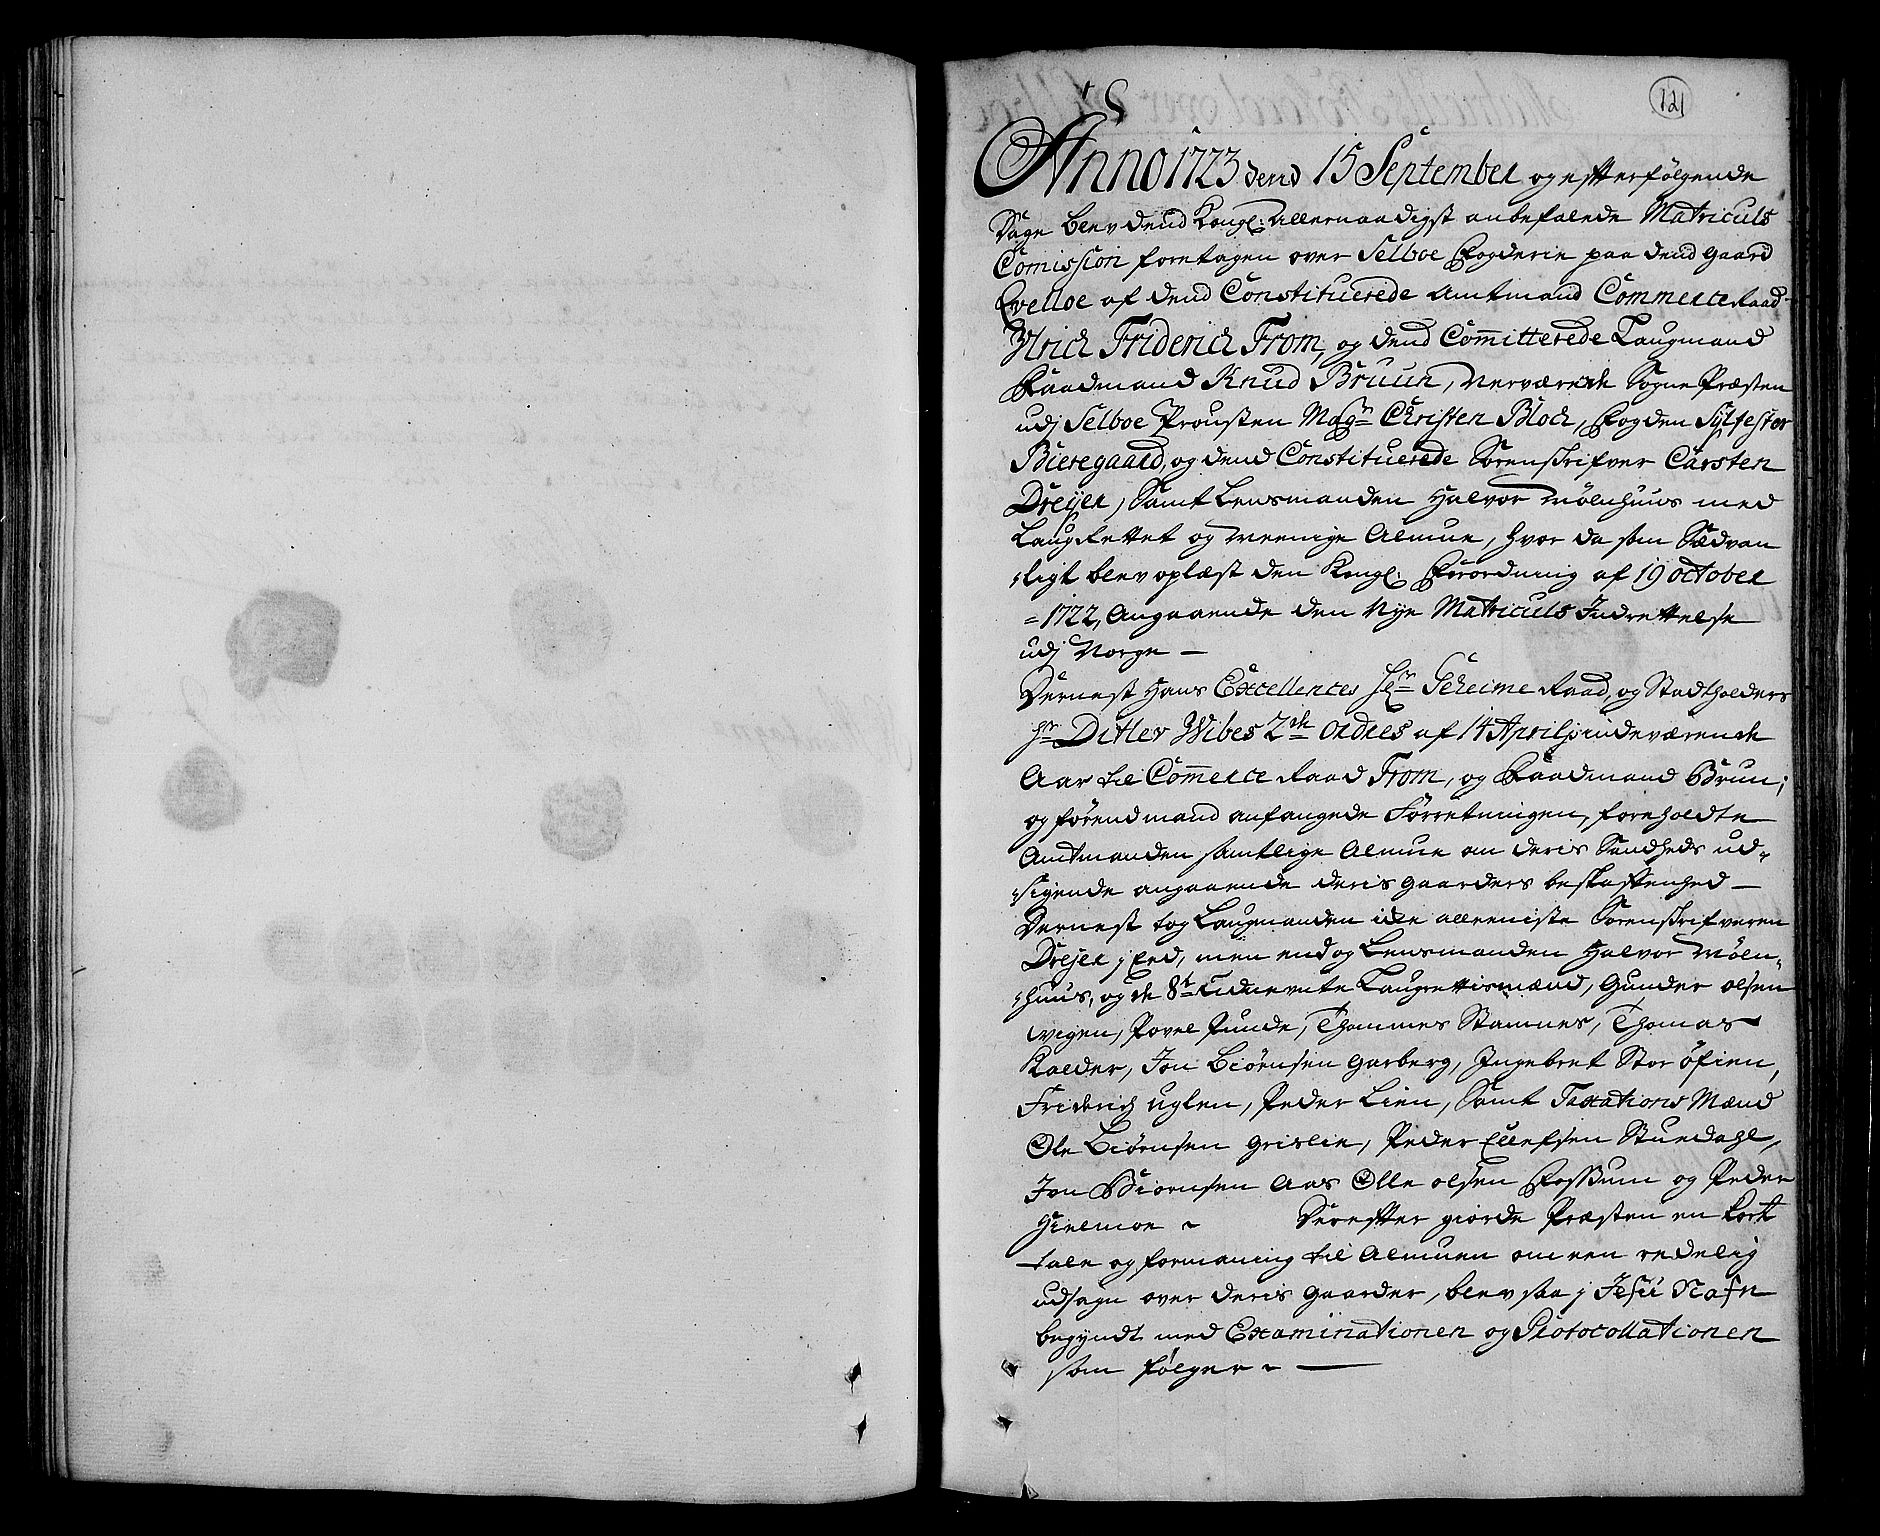 121
Anno 1723 dend 15 September og efterfølgende
Dage blev dend Kongl: Allernaadigst anbefalede Matriculs
Comission foretagen over Selboe Fogderie paa dend gaard
Evelloe af dend Constituerede Amtmand Commerce Raad
Ulrich Friderich From, og dend Committerede Laugmand
Raadmand Knud Bruun, Nerværende Sogne Præsten
udj Selboe Prousten Magr Christen Bloch, Fogden Sylfester
Bieregaard, og dend Constituerede Sorenskrifver Carsten
Dreyer, Samt Lensmanden Halvor Mølnhuus med
LaugRettet og meenige Almue, hvor da som Sædvan
ligt blev oplæst den Kongl: Forordning af 19 october
=1722, Angaaende den Nye Matriculs Indrettelse
udj Norge —
Dernest Hans Excellences Hr Geheime Raad, og Stadtholders
Hr Ditlev Wibes 2de Ordres af 14 April indeværende
Aar til Commerce Raad From, og Raadmand Brun;
og førend mand anfangede Forretningen, foreholdte
Amtmanden samtlige Almue om deris Sandheds ud-
sigende angaaende deris gaarders beskaffenhed —
Dernest tog Laugmanden icke alleeniste Sorenskrifveren
Drejer j Eed, men end og Lensmanden Halvor Møln-
huus, og de 8te udnevnte Laugrettismænd, Gunder olsen
wigen, Povel Punde, Thommes Stamnes, Thomas
Kalder, Jon Biørnsen Garberg, Ingebret Stor øfien,
Friderich uglen, Peder Lien, Samt Taxations Mænd
Ole Biørnsen Grislie, Peder Ellefsen Stuedahl,
Jon Biornsen Aas Olle olsen Fossum og Peder
Hirlmoe ~ Derefter giorde Præsten en kort
tale og formaning til Almuen om een redelig
udsagn over deris gaarder, blev saa j Jesu Nafn
begyndt med Examinationen og Protocollationen
som følger ~ —